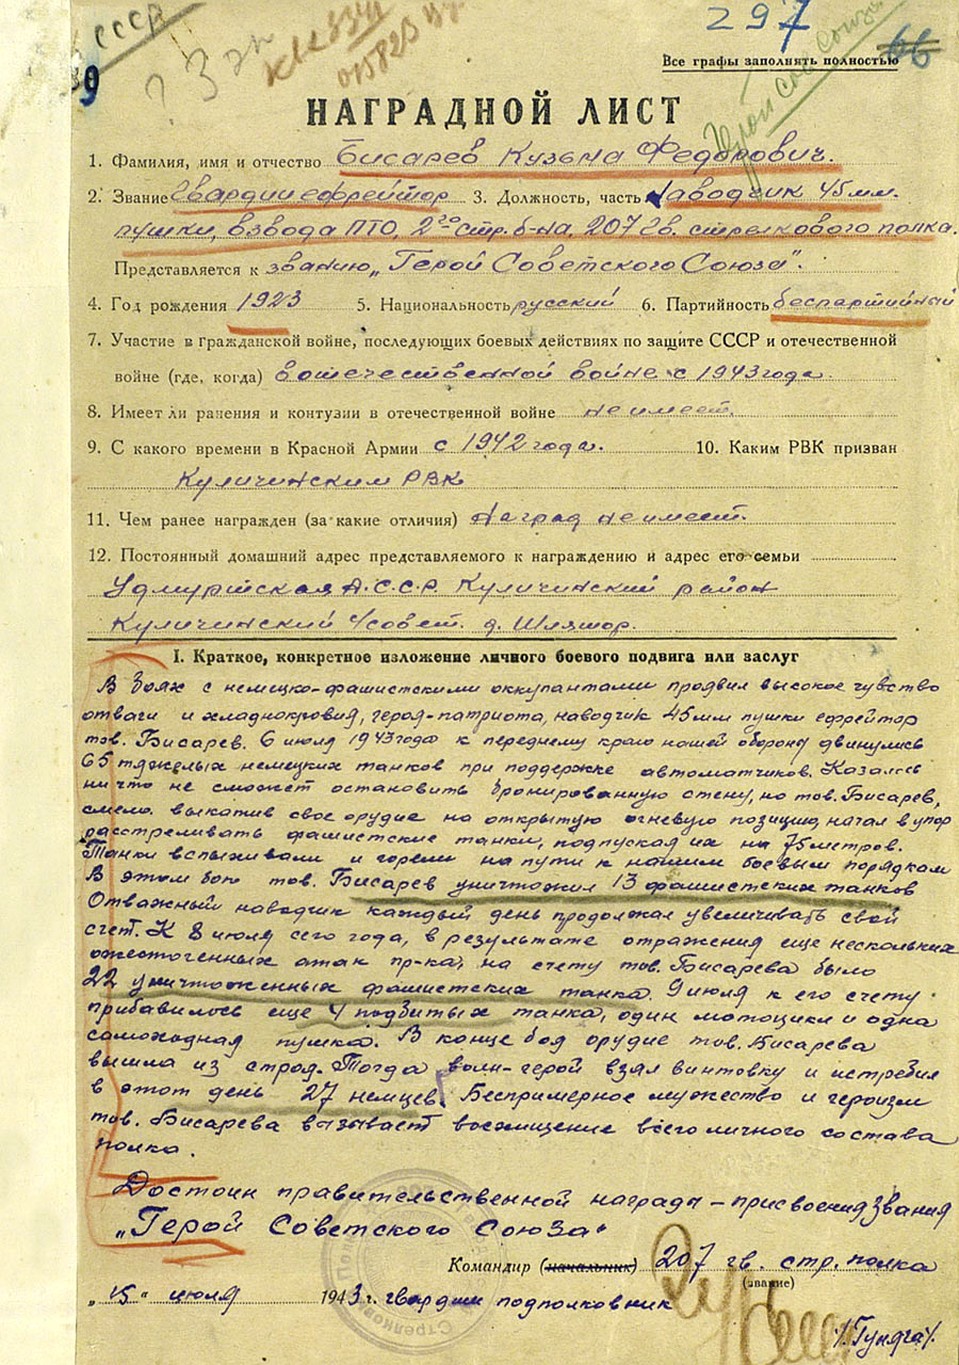 СССР
297
66
9
Герой Сов Союза
Все графы заполнять полностью
НАГРАДНОЙ ЛИСТ
1. Фамилия, имя и отчество Бисарев Кузьма Федорович.
2. Звание Гвардии ефрейтор 3. Должность, часть Наводчик 45 мм.
пушки, взвода ПТО, 2го стр. б-на, 207 Гв. стрелкового полка.
Представляется к званию „Герой Советского Союза".
4. Год рождения 1923 5. Национальность русский 6. Партийность беспартийный
7. Участие в гражданской войне, последующих боевых действиях по защите СССР и отечественной
войне (где, когда) в отечественной войне с 1943 года.
8. Имеет ли ранения и контузии в отечественной войне не имеет.
9. С какого времени в Красной Армии с 1942 года. 10. Каким РВК призван
Куличинским РВК
11. Чем ранее награжден (за какие отличия) Наград не имеет.
12. Постоянный домашний адрес представляемого к награждению и адрес его семьи
Удмуртская А.С.С.Р. Куличинский район
Куличинский с/совет. д. Шляшор.
I. Краткое, конкретное изложение личного боевого подвига или заслуг
В боях с немецко-фашистскими оккупантами проявил высокое чувство
отваги и хладнокровия, героя-патриота, наводчик 45 мм пушки ефрейтор
тов. Бисарев. 6 июля 1943 года к переднему краю нашей обороны двинулись
65 тяжелых немецких танков при поддержке автоматчиков. Казалось
ничто не сможет остановить бронированную стену, но тов. Бисарев,
смело выкатив свое орудие на открытую огневую позицию, начал в упор
расстреливать фашистские танки, подпуская их на 75 метров.
Танки вспыхивали и горели на пути к нашим боевым порядкам
В этом бою тов. Бисарев уничтожил 13 фашистских танков
Отважный наводчик каждый день продолжал увеличивать свой
счет. К 8 июля сего года, в результате отражения еще нескольких
ожесточенных атак пр-ка, на счету тов. Бисарева было
22 уничтоженных фашистских танка. 9 июля к его счету
прибавилось еще 4 подбитых танка, один мотоцикл и одна
самоходная пушка. В конце боя орудие тов. Бисарева
вышла из строя. Тогда воин-герой взял винтовку и истребил
в этот день 27 немцев. Беспримерное мужество и героизм
тов. Бисарева вызывает восхищение всего личного состава
полка.
Достоин правительственной награды – присвоения звания
„Герой Советского Союза"
Командир (начальник) 207 гв. стр. полка
(звание)
„15" июля 1943 г. гвардии подполковник
/Гуняга/.